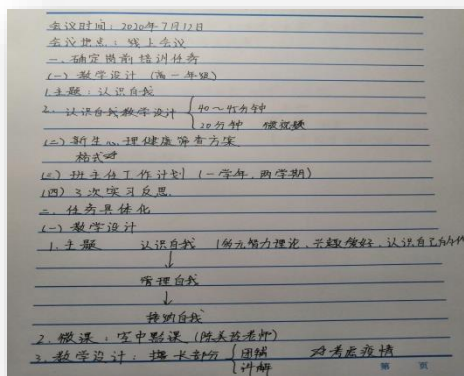 会议时间：2020年7月12日
会议地点：线上会议
一、确定岗前培训任务
(一) 教学设计 (高一年级)
1.主题：认识自我
2、认识自我教学设计 { 40～45分钟
20分钟 微视频
(二) 新生心理健康筛查方案
格式
(三) 班主任工作计划 (一学年，两学期)
(四) 3次实习反思.
二、任务具体化
(一) 教学设计
1.主题 认识自我 (多元智力理论、兴趣偏好、认识自己的
↓
管理自我
↓
接纳自我
2、微课：空中黔课 (老师)
3、教学设计： 部分 { 团辅 考虑疫情
讲解
第 页